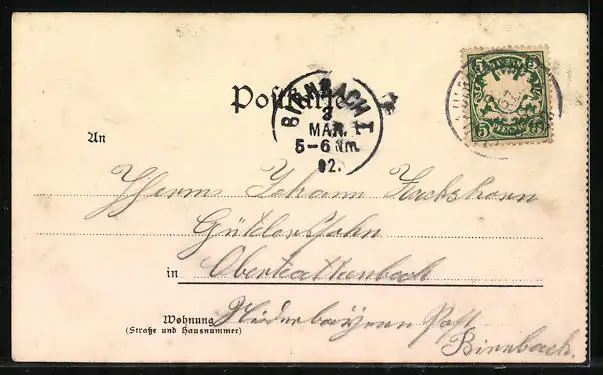 Postkarte
BIRNBACH I
3
MAR.
5-6 Nm.
02.
BAYERN
5 5
PFENNIG
An
Herrn Johann
Gütlerssohn
in Oberkattenbach
Wohnung Niederbayern Post
(Straße und Hausnummer)
Birnbach.